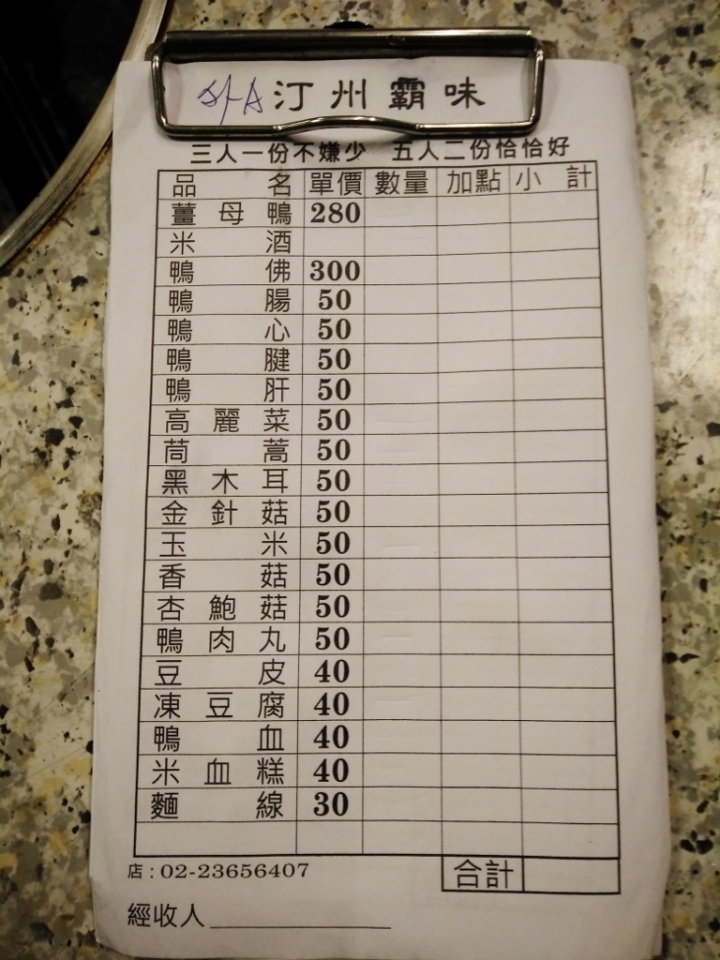 汀州霸味
三人一份不嫌少 五人二份恰恰好
品名 單價 數量 加點 小計
薑母鴨 280
米酒
鴨佛 300
鴨腸 50
鴨心 50
鴨腱 50
鴨肝 50
高麗菜 50
茼蒿 50
黑木耳 50
金針菇 50
玉米 50
香菇 50
杏鮑菇 50
鴨肉丸 50
豆皮 40
凍豆腐 40
鴨血 40
米血糕 40
麵線 30
店：02-23656407 合計
經收人